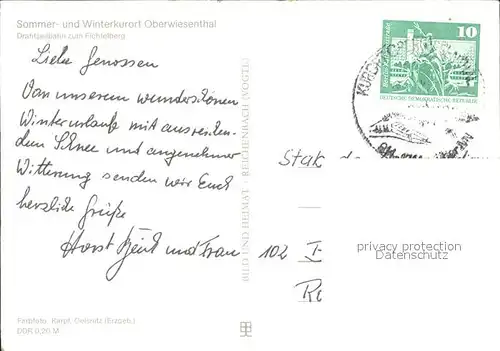 Sommer- und Winterkurort Oberwiesenthal
Drahtseilbahn zum Fichtelberg
10
DEUTSCHE DEMOKRATISCHE REPUBLIK
Liebe Genossen
Von unserem wunderschönen
Winterurlaub mit ausreichen-
dem Schnee und angenehmer
Witterung senden wir Euch
herzliche Grüße
Horst und Frau
BILD UND HEIMAT REICHENBACH (VOGTL)
102
privacy protection
Datenschutz
Farbfoto: Karpf, Oelsnitz (Erzgeb.)
DDR 0,20 M